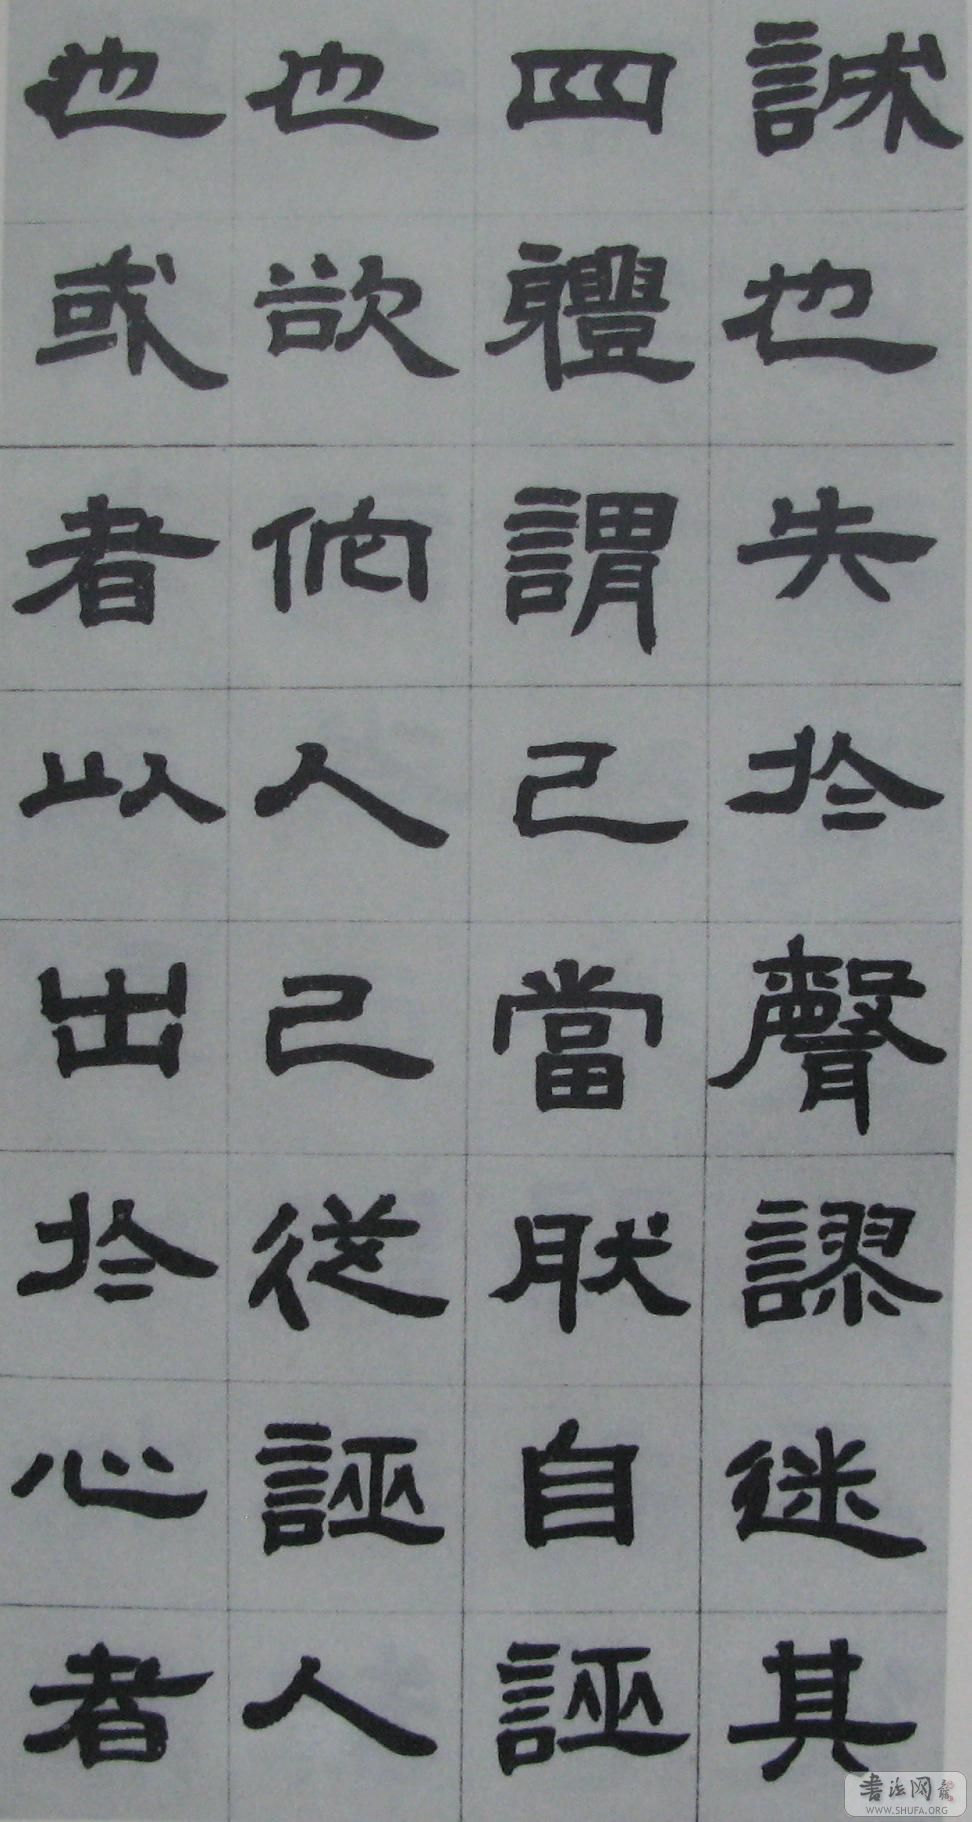 誠也失於聲謬迷其
四體謂己當肰自誣
也欲他人己從誣人
也或者以出於心者
書法网
WWW.SHUFA.ORG